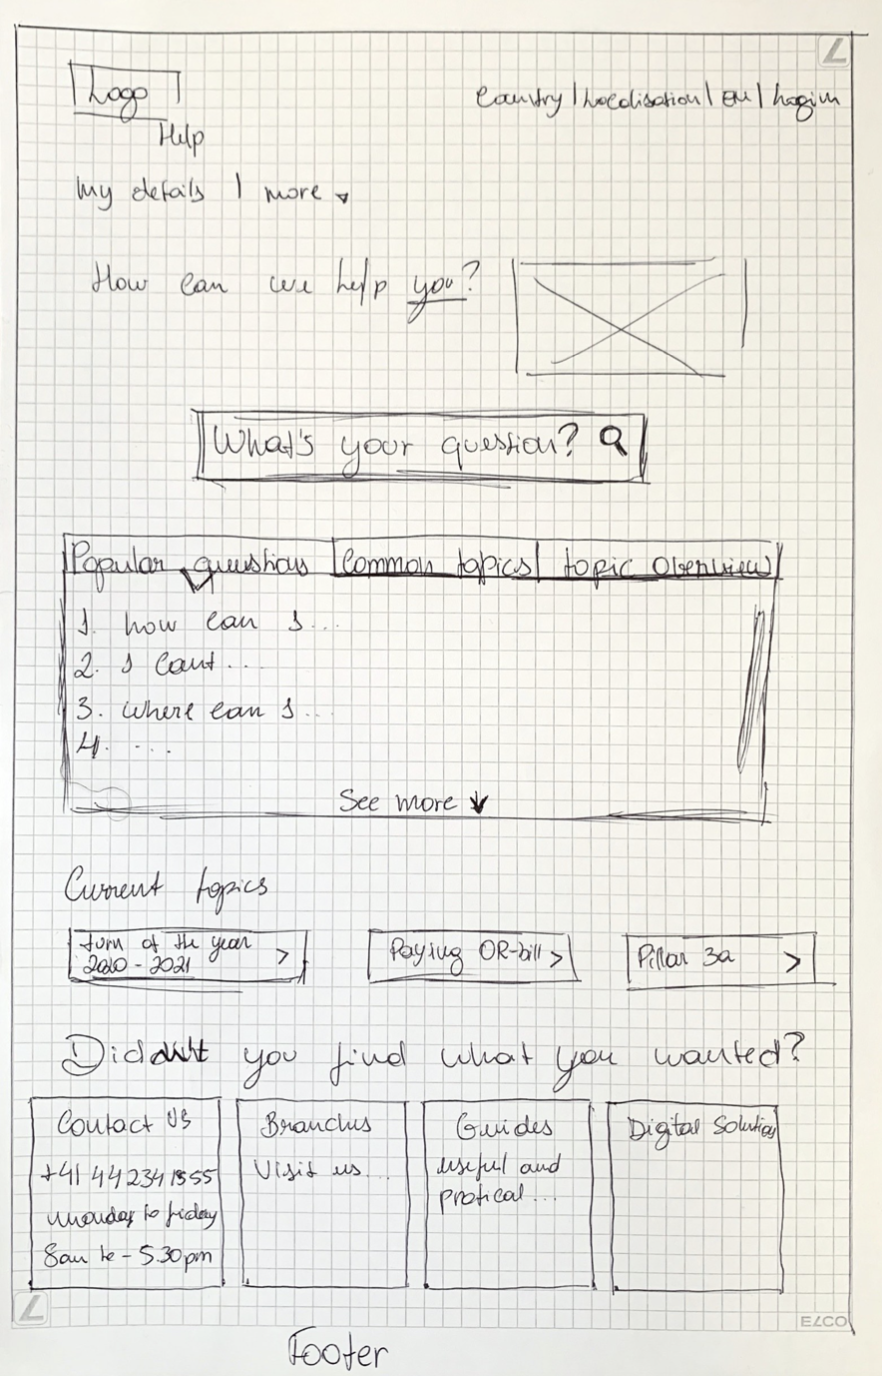 Logo
Country | Localisation | EN | Login
Help
My details | more
How can we help you?
What's your question?
Popular questions | Common topics | topic overview
1. how can I...
2. I cant...
3. where can I...
4. ...
See more
Current topics
turn of the year
2020 - 2021
Paying QR-bill >
Pillar 3a >
Didn't you find what you wanted?
Contact US
+41 44 234 1555
monday to friday
8am to - 5.30pm
Branches
Visit us...
Guides
useful and
pratical...
Digital Solution
ELCO
Footer